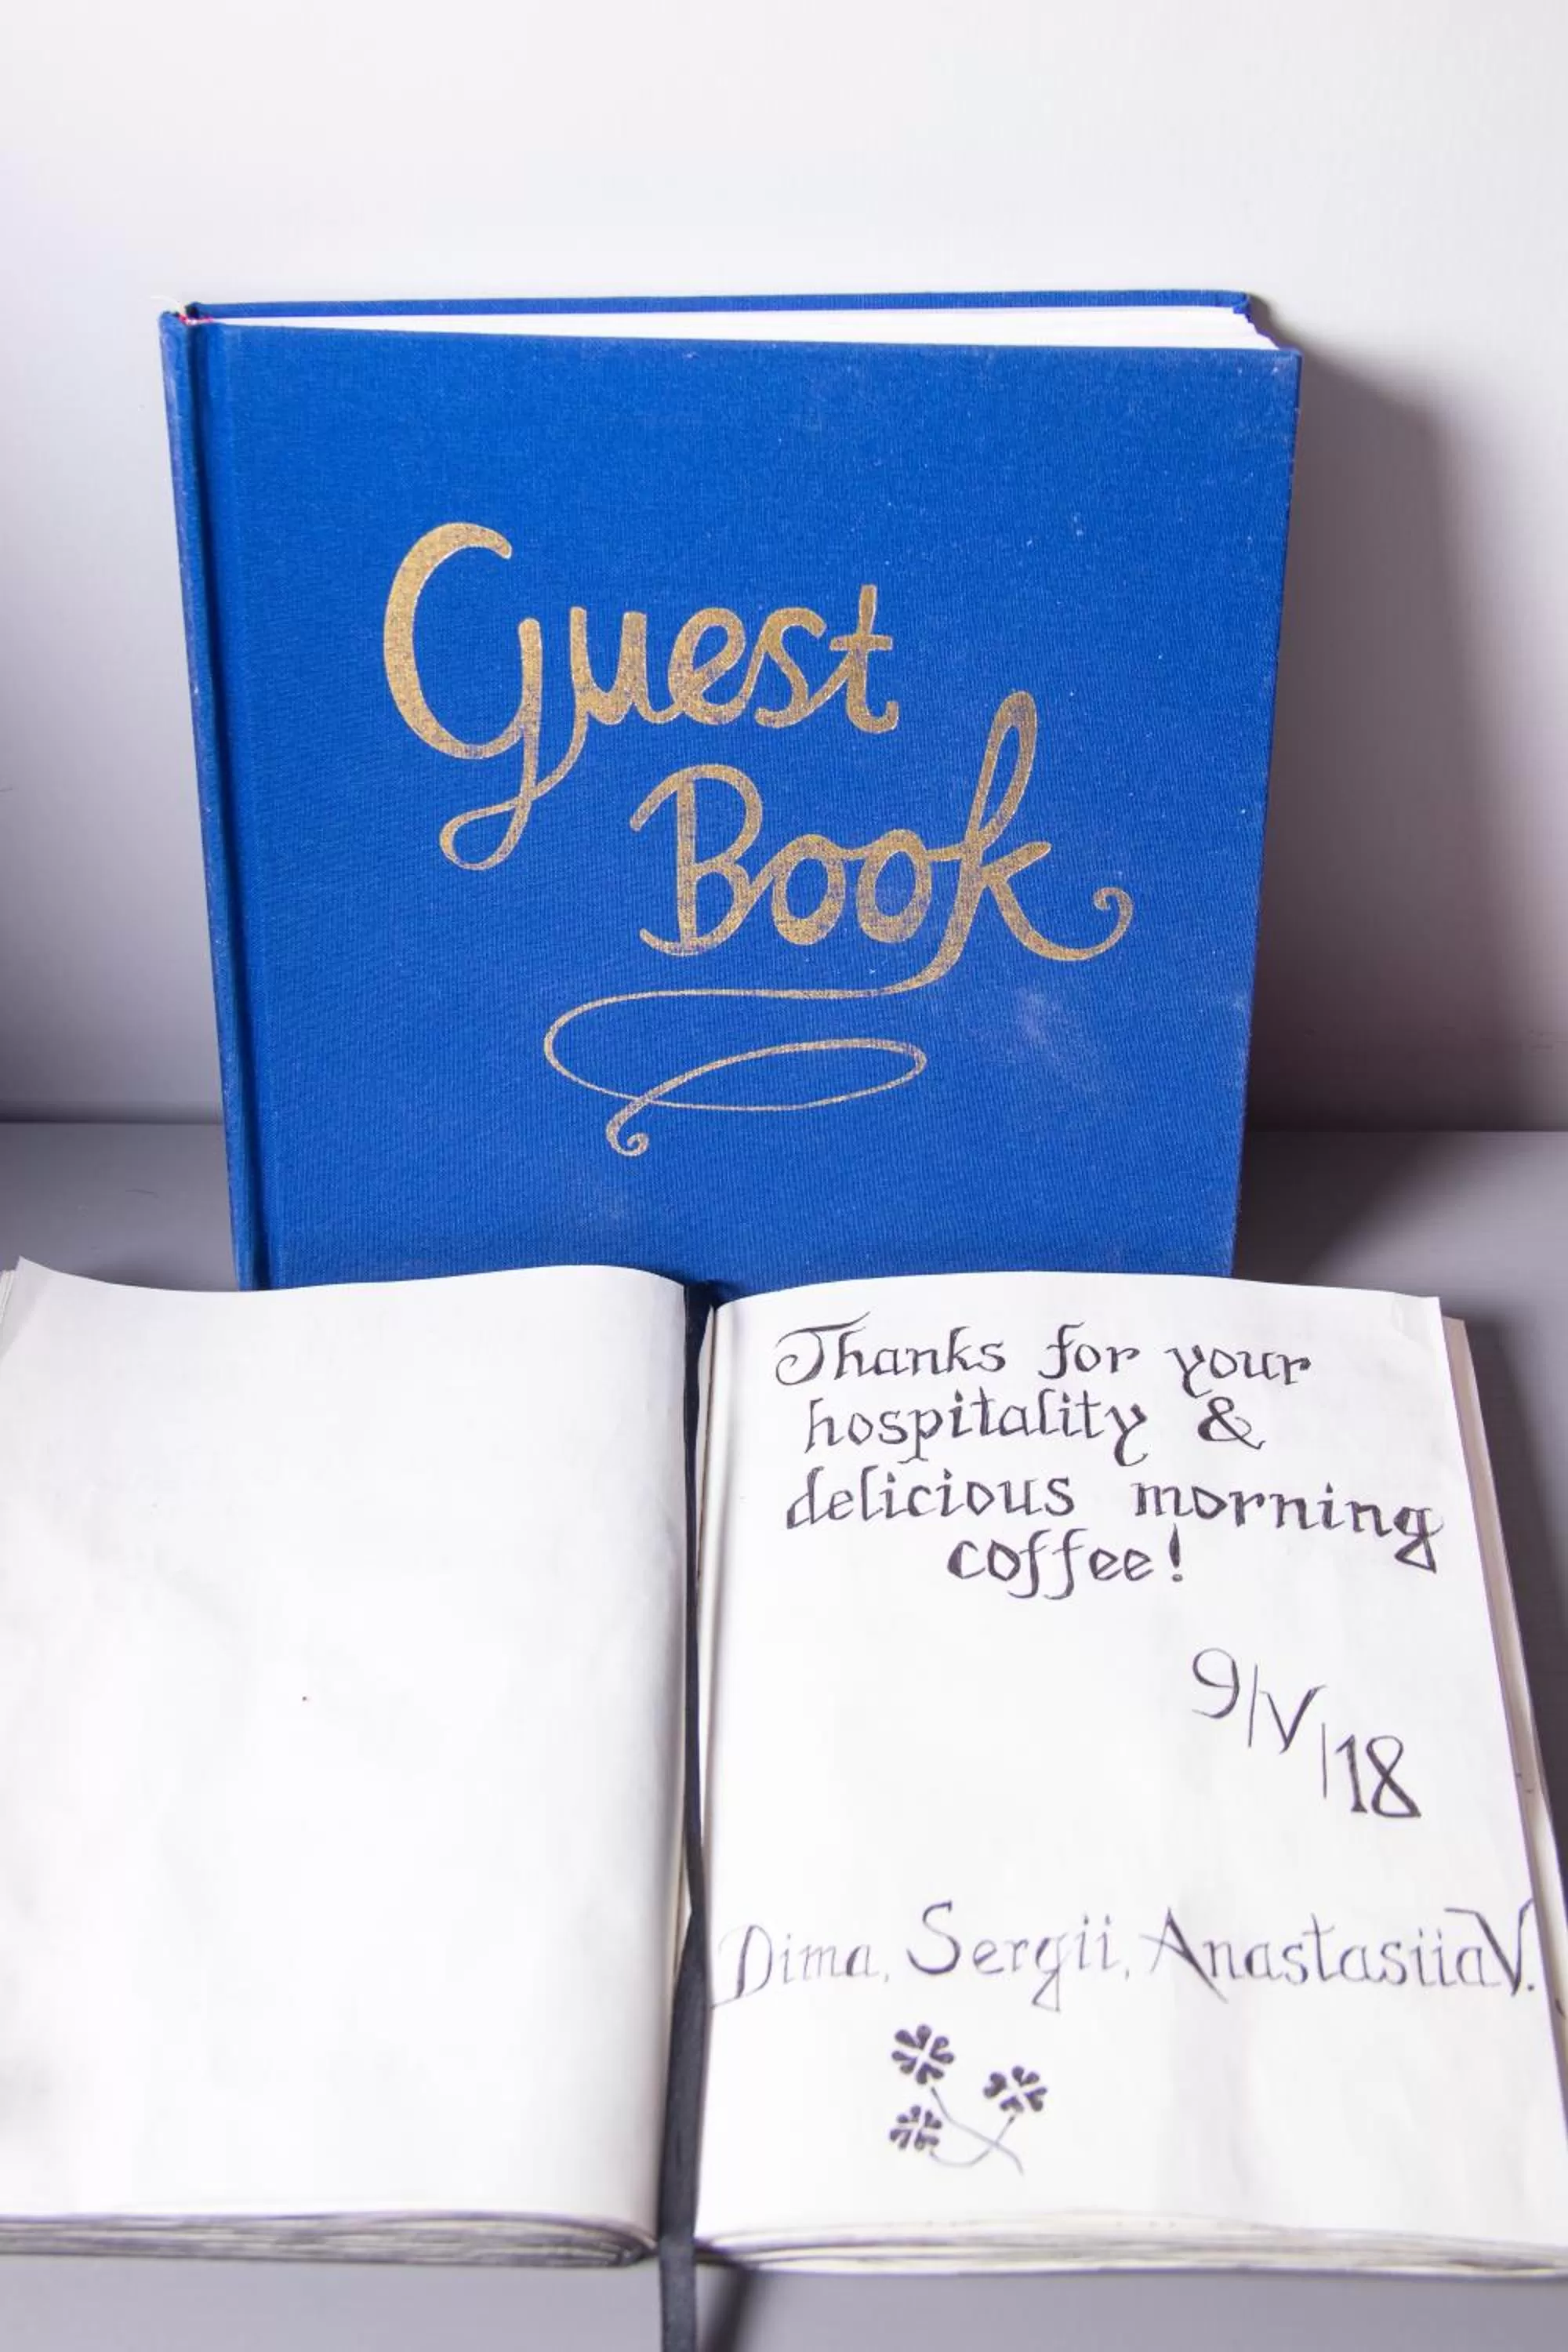 Guest
Book
Thanks for your
hospitality &
delicious morning
coffee!
9/V/18
Dima, Sergii, Anastasiia V.